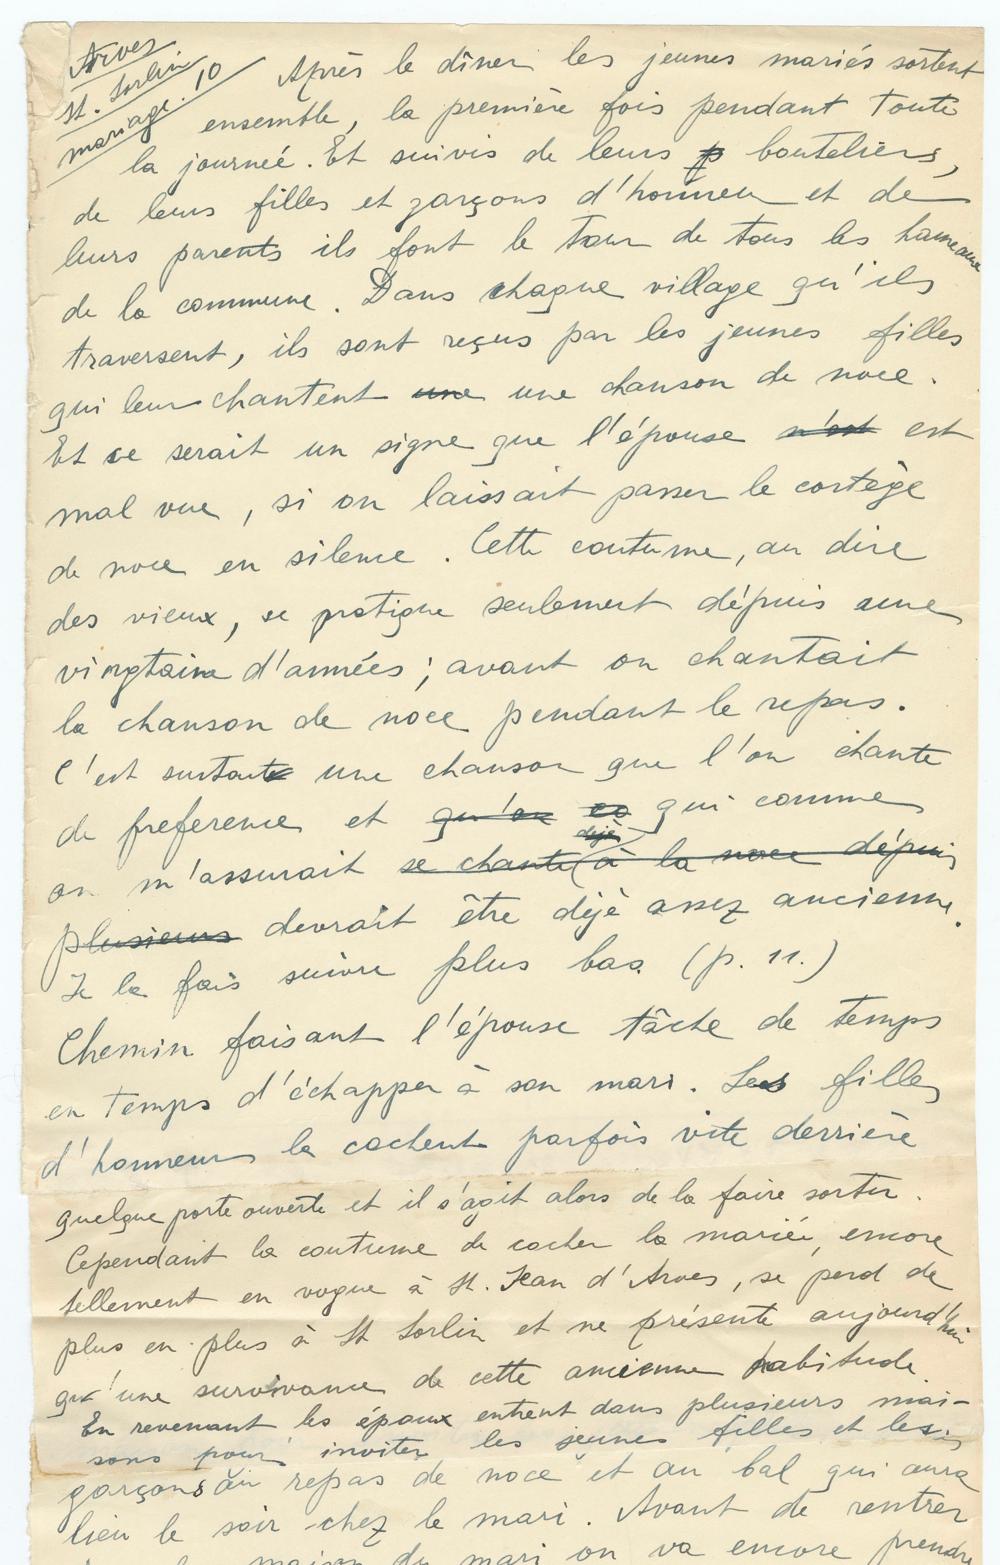 Arves
St. Sorlin
mariage. 10
Après le dîner les jeunes mariés sortent
ensemble, la première fois pendant toute
la journeé. Et suivis de leurs p bouteliers,
de leurs filles et garçons d'honneur et de
leurs parents ils font le tour de tous les hameaux
de la commune. Dans chaque village qu'ils
traversent, ils sont reçus par les jeunes filles
qui leur chantent une une chanson de noce.
Et ce serait un signe que l'épouse n'est est
mal vue, si on laissait passer le cortège
de noce en silence. Cette coutume, au dire
des vieux, se pratique seulement dépuis une
vingtaine d'années; avant on chantait
la chanson de noce pendant le repas.
C'est surtout une chanson que l'on chante
de preference et qu'on co qui comme
on m'assurait se chante (déjà à la noce dépuis
plusieurs devrait être déjà assez ancienne.
Je la fais suivre plus bas (p. 11.)
Chemin faisant l'épouse tâche de temps
en temps d'échapper à son mari. Les filles
d'honneur la cachent parfois vite derrière
quelque porte ouverte et il s'agit alors de la faire sortir.
Cependant la coutume de cacher la mariée, encore
tellement en vogue à St. Jean d'Arves, se perd de
plus en plus à St Sorlin et ne présente aujourd'hui
qu'une survivance de cette ancienne habitude.
En revenant les époux entrent dans plusieurs mai-
sons pour inviter les jeunes filles et les
garçons au repas de noce et au bal qui aura
lieu le soir chez le mari. Avant de rentrer
maison du mari on va encore prendre